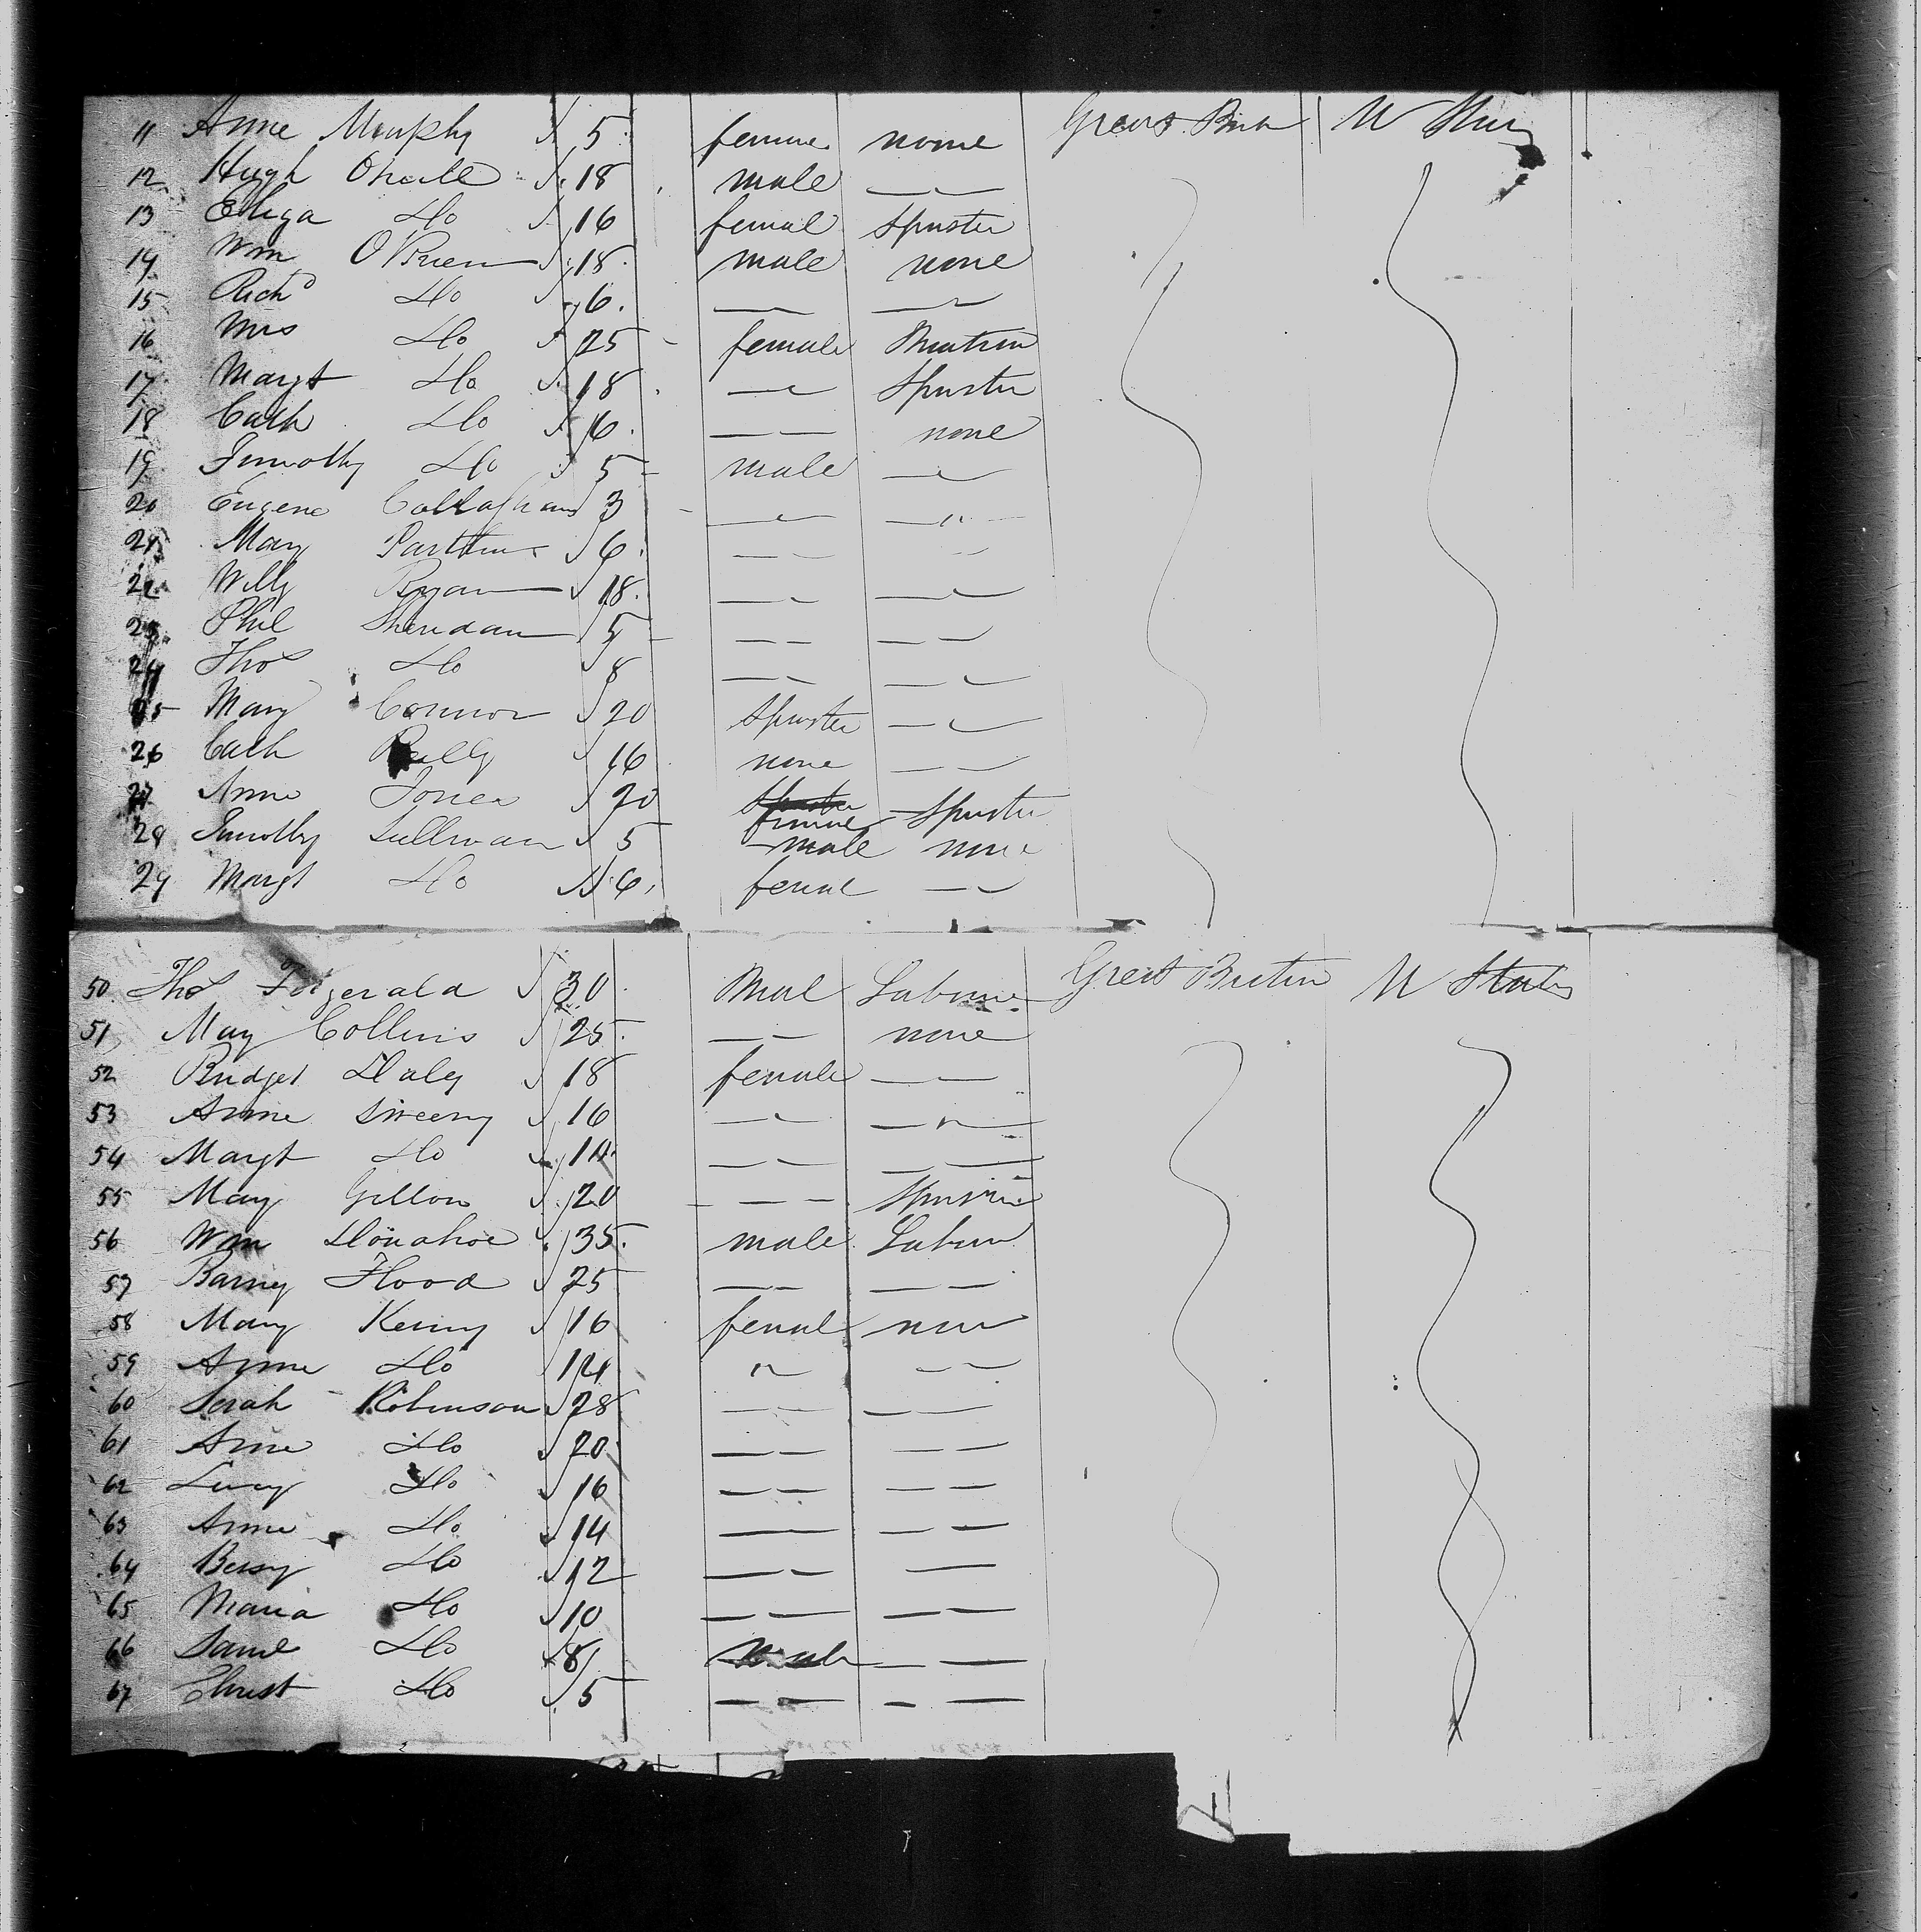 11 Anne Murphy 5 female none Great Britn U States
12 Hugh Oneill 18 male — —
13 Eliza Do 16 female Spinster
14 Wm O'Brien 18 male none
15 Richd Do 6 — —
16 Mrs Do 25 female Matron
17 Margt Do 18 — Spinster
18 Cath Do 6 — — none
19 Timothy Do 5 male —
20 Eugene Callaghan 3 — — "
21 Mary 6 — — — —
22 Willy Ryan 18 — — — —
23 Phil Sheridan 5 — — — —
24 Thos Do 8 — — — —
25 Mary Connor 20 Spinster — —
26 Cath Reilly 16 none — —
27 Anne Jones 20 female Spinster
28 Timothy Sullivan 5 male none
29 Margt Do 6 femal — —
50 Thos Fitzgerald 30 Mal Labourer Great Britain U States
51 May Collins 25 — — none
52 Bridget Daley 18 female — —
53 Anne Sweeny 16 — — — "
54 Margt Do 14 — — — —
55 Mary Gillon 20 — — — Spinster
56 Wm Donahoe 35 male Labour
57 Barney Flood 25 — — — —
58 Mary Kenny 16 femal none
59 Anne Do 14 " — —
60 Sarah Robinson 28 — — — —
61 Anne Do 20 — — — —
62 Lucy Do 16 — — — —
63 Anne Do 14 — — — —
64 Betsy Do 12 — — —
65 Maria Do 10 — — — —
66 Saml Do 8 male — —
67 Christ Do 5 — — — —